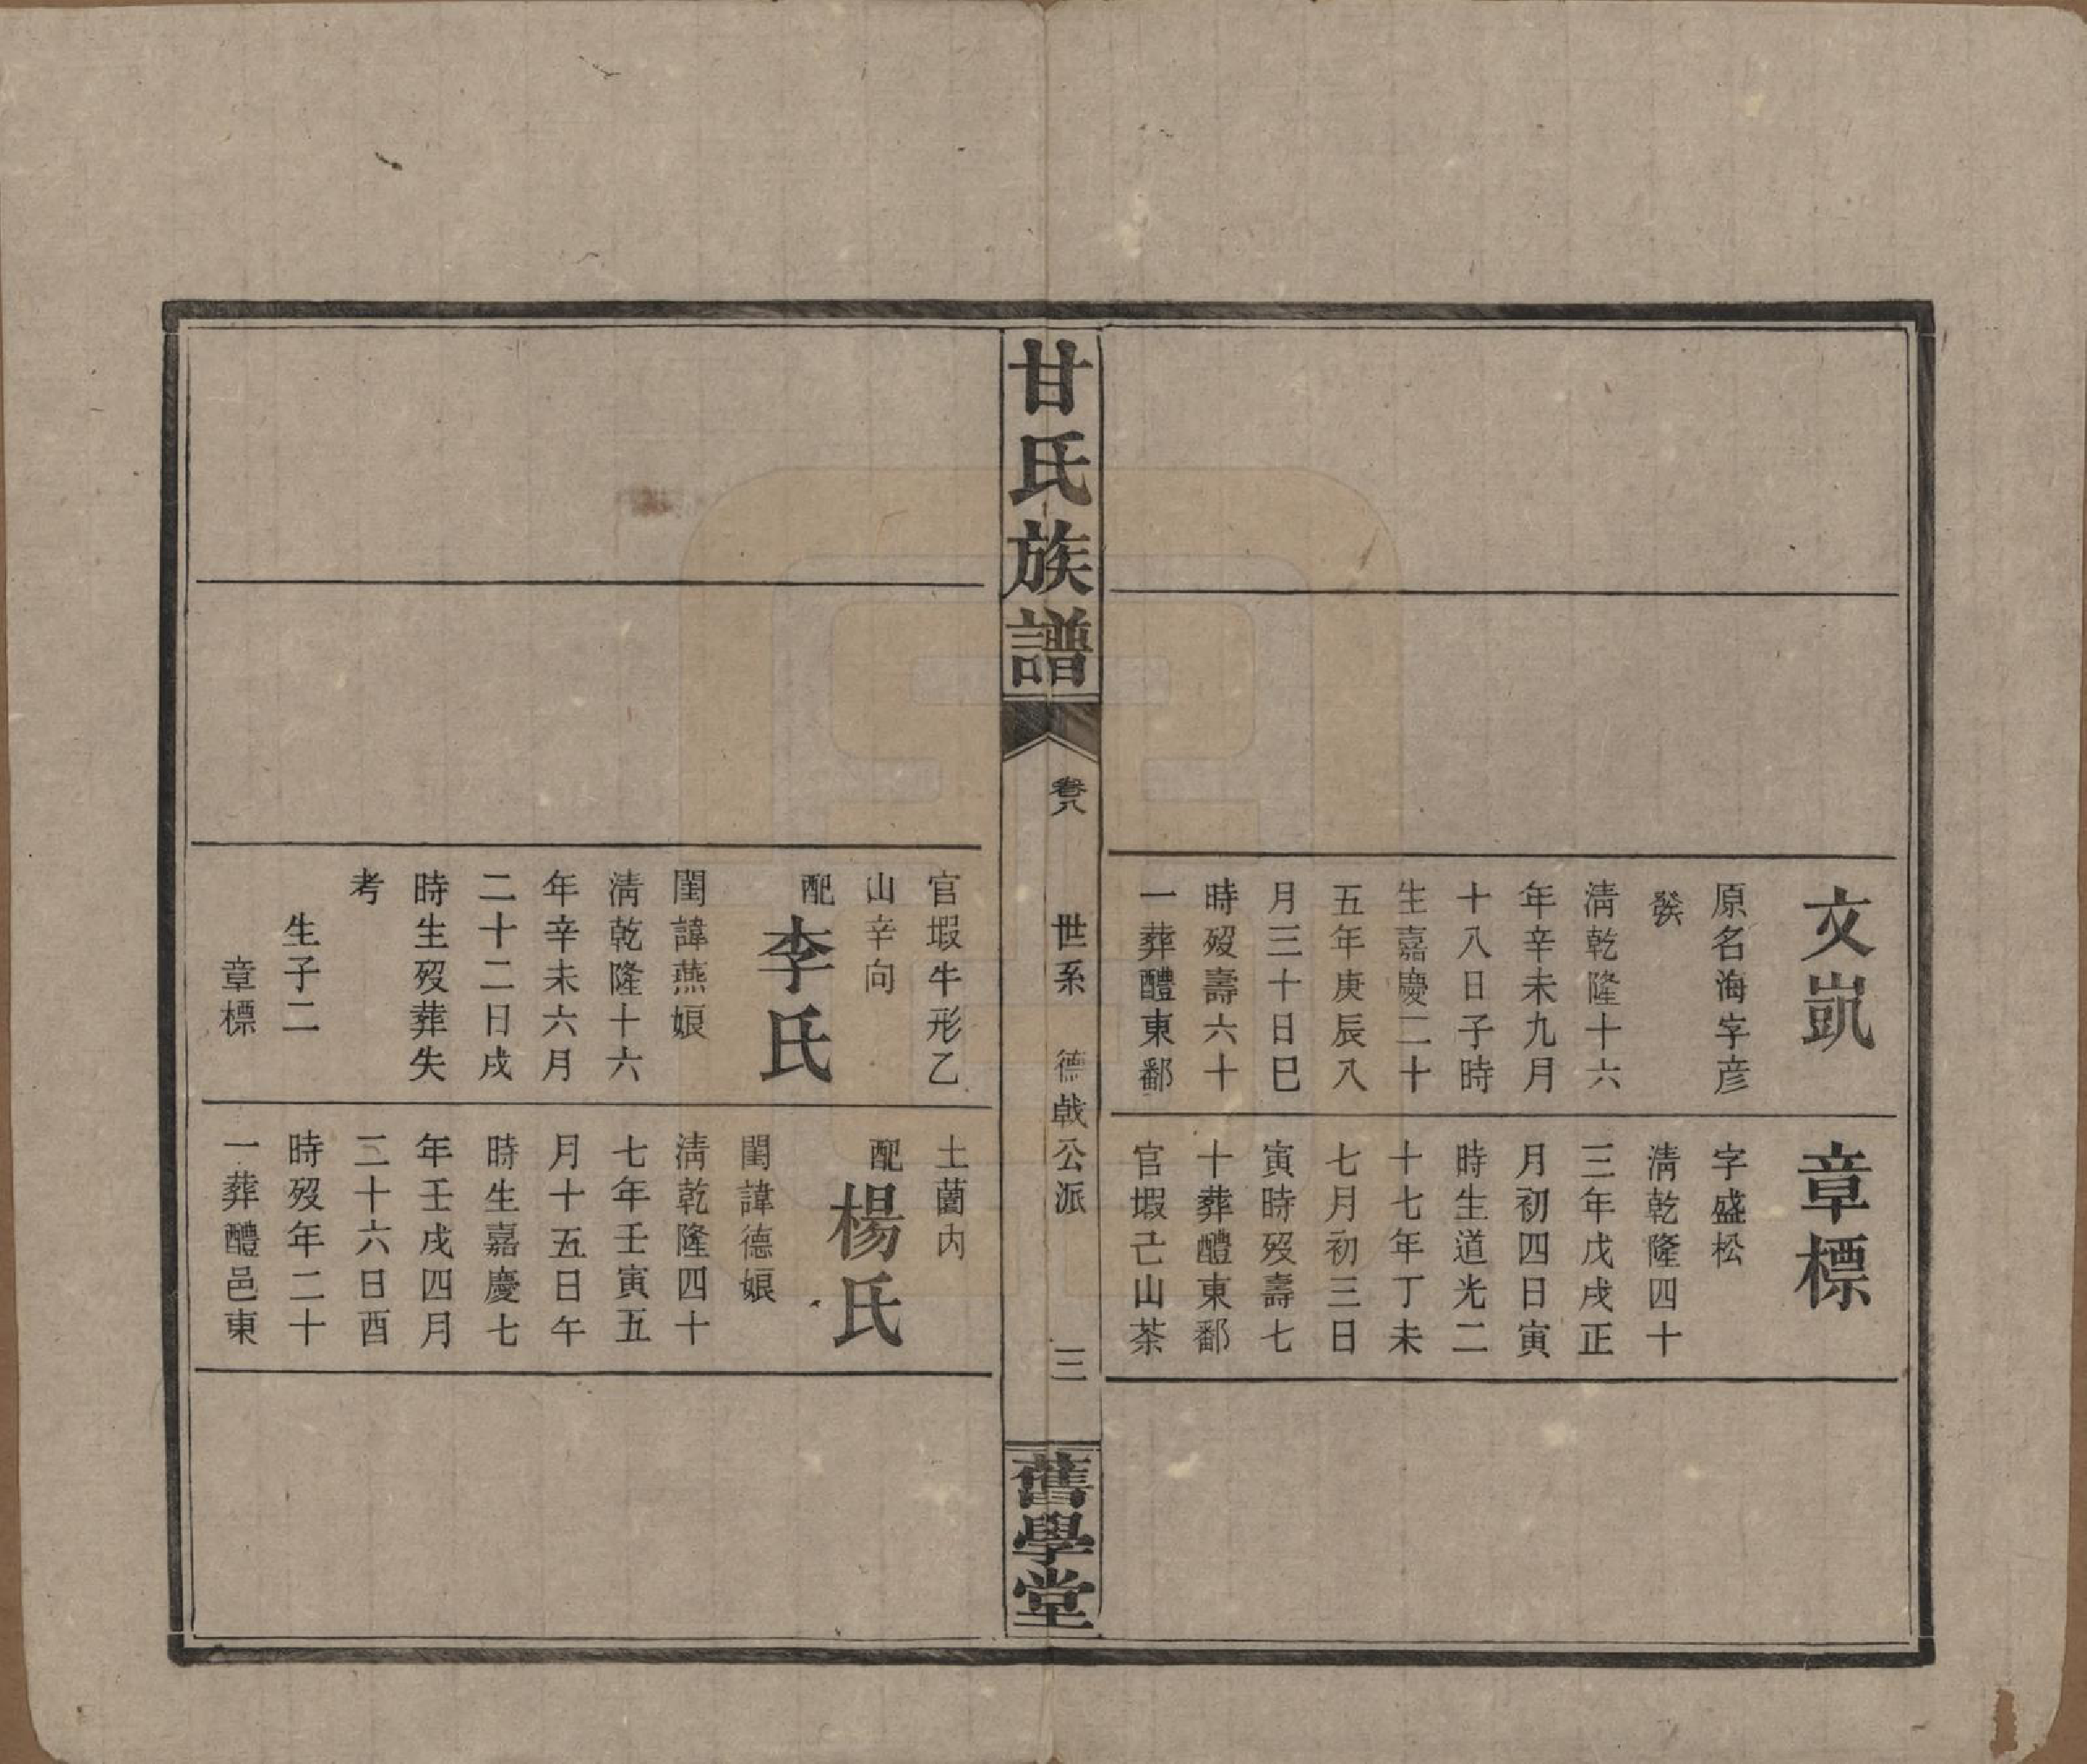 文凱
原名海字彥
清乾隆十六
年辛未九月
十八日子時
生嘉慶二十
五年庚辰八
月三十日巳
時歿壽六十
一葬醴東鄱
章標
字盛松
清乾隆四十
三年戊戌正
月初四日寅
時生道光二
十七年丁未
七月初三日
寅時歿壽七
十葬醴東鄱
官塅己山茶
甘氏族譜
卷八
世系
德戟公派
三
舊學堂
官塅牛形乙
山辛向
配李氏
閨諱燕娘
清乾隆十六
年辛未六月
二十二日戌
時生歿葬失
考
生子二
章標
土薗內
配楊氏
閨諱德娘
清乾隆四十
七年壬寅五
月十五日午
時生嘉慶七
年壬戌四月
二十六日酉
時歿年二十
一葬醴邑東